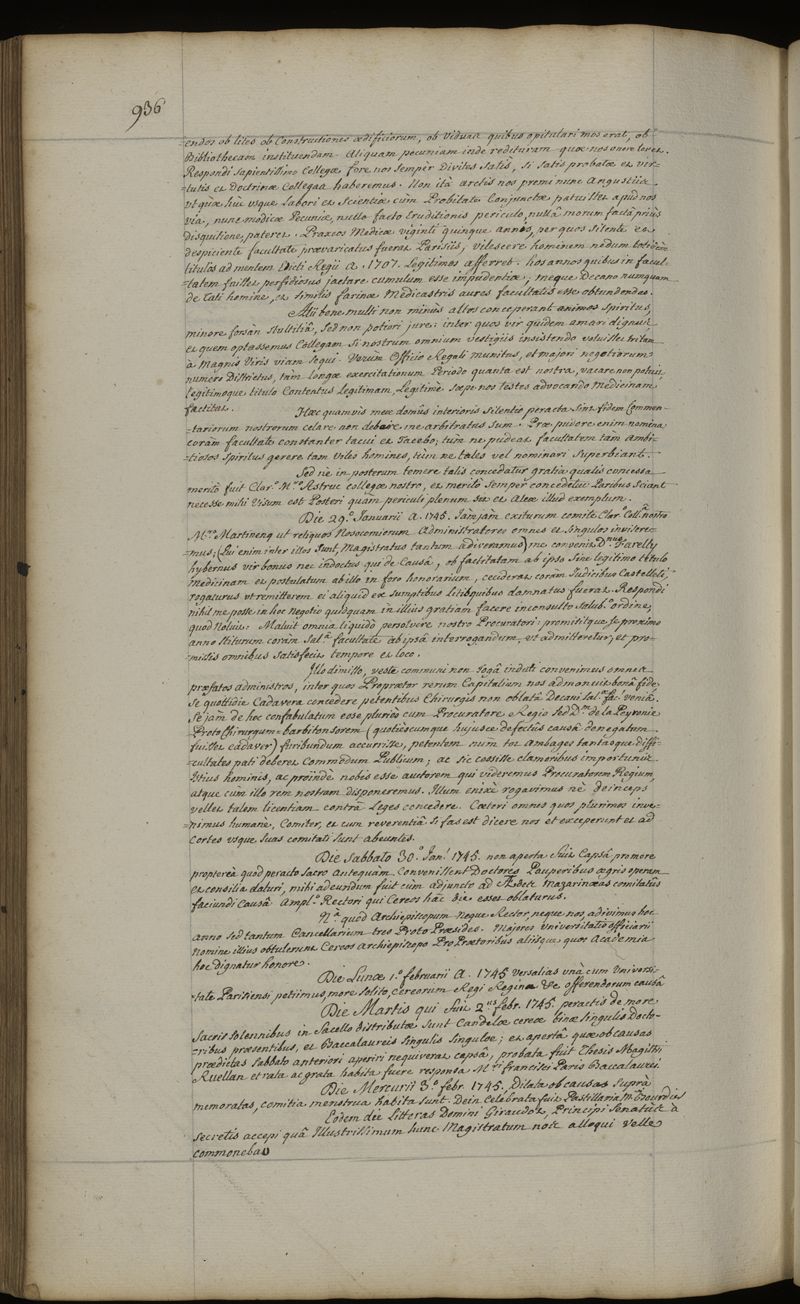 936
endos ob lites ob Constructiones ædificiorum, ob Viduas quibus opitulari mos erat, ob
Bibliothecam instituendam. Aliquam pecuniam inde redituram quæ nos onere levet.
Respondi Sapientissimo Collegæ fore nos Semper Divites Satis, Si Satis probatæ et vir-
=tutis et Doctrinæ Collegas haberemus. Non ità arctis nos premi nunc Angustiis
ut quæ huc usque Labori et Scientiæ cum Probitate Conjunctæ patuisset apud nos
via, nunc modicæ Pecuniæ, nullo facto Eruditionis periculo, nullâ morum factâ priùs
Disquitione, pateret. Praxeos Medicæ viginti quinque annos, per quos Silente et
despiciente facultate prævaricatus fuerat Parisiis, vilescere hominem nedum
titulos ad mentem Edicti Regii A. 1707. Legitimos afferret. hos annos quibus in facul-
=tatem fuisset perfidiosus jactare cumulum esse impudentiæ; neque Decano numquam
de tali homine, et Similis farinæ Medicastris aures facultatis esse obtundendas.
Alii bene multi non minùs altos conceperant animos Spiritus,
minore forsàn Stultitiâ, Sed non potiori jure. inter quos vir quidem amari dignus
et quem optassemus Collegam Si nostrum omnium vestigiis insistendo voluisset
à Magnis Viris viam Sequi. Verùm Officio Regali munitus, et majori negotiorum
numero Districtus, tàm longæ exercitationum Periodo quanta est nostra, vacare non potuit,
Legitimoque titulo Contentus Legitimam, Legitimè Sæpe nos testes advocando Medicinam
factitat.
Hæc quamvis meæ domûs interioris Silentio peracta Sint fidem Commen-
=tariorum nostrorum celare non debere me arbitratus Sum. Præ pudore enim nomina
coràm facultate constanter tacui et Tacebo; tùm ne pudeat facultatem tàm ambi-
=tiosos Spiritus gerere tam Viles homines, tùm ne tales vel nominari Superbiant.
Sed ne in posterum temere talis concedatur gratia qualis concessa
meritò fuit Clar.o M.ro Astruc collegæ nostro, et meritò Semper concedetur Paribus Sciant
necesse mihi Visum est Posteri quàm periculi plenum Sit et Aleæ illud exemplum.
Die 29.â Januarii A. 1745. Jamjàm exiturum comite Clar.o Coll.â nostro
M.ro Martinenq ut reliquos Nosocomiorum Administratores omnes et Singulos invisere-
=mus; (Qui enim inter illos Sunt, Magistratus tantum adiveramus) me convenit D.nus Farelly
hybernus vir bonus nec indoctus qui de Causâ, ob facilitatem ab ipso Sine legitimo titulo
Medicinam et postulatum ab illo in foro honorarium, ceciderat coràm Judicibus Castelleti,
rogaturus ut remitterem ei aliquid ex Sumptibus litis quibus damnatus fuerat. Respondi
nihil me posse in hoc Negotio quidquam in illius gratiam facere inconsulto Salub.o ordine,
quod Noluit. Maluit omnia liquidò persolvere nostro Procuratori: promisitque Se proximo
anno Stiturum coràm Sal.â facultate ab ipsâ interrogandum, ut admitteretur, et pro-
=missis omnibus Satisfecit tempore et loco.
Illo dimisso, veste communi non Togâ induti convenimus omnes
præfatos administros, inter quos Proprætor rerum Capitalium nos admonuit bonâ fide
Se quottidie Cadavera concedere petentibus Chirurgis non oblatâ Decani Sal.æ fa.tis veniâ.
Se jàm de hoc confabulatum esse pluries cum Procuratore Regio Sed D.um de la Peyronie
Proto Chirurgum=barbitonsorem (quotiescumque hujusce defectûs causâ denegatum
fuisset cadaver) furibundum accurrisse, petentem num tot Ambages tantasque diffi-
=cultates pati deberet Commodum Publicum; ac Sic cessisse clamoribus importunis
Istius hominis, ac proindè nobis esse autorem qui videremus Procuratorem Regium,
atque cùm illo rem nostram disponeremus. Illum enixè rogavimus nè deinceps
vellet talem licentiam contrà Leges concedere. Cæteri omnes quos plurimos inve-
=nimus humanè, Comiter, et cum reverentiâ Si fas est dicere nos et exceperunt et ad
Cortes usque Suas comitati Sunt abeuntes.
Die Sabbato 30.â Jan.i 1745. non aperta Fuit Capsa pro more
proptereà quod peracto Sacro antequam Convenissent Doctores Pauperibus ægris operam
et consilia daturi, mihi adeundum fuit cùm adjuncto ad Ædes Mazarinæas comitatûs
faciundi Causâ Ampl.o Rectori qui Cereos hac die esset oblaturus.
N.a quod Archiepiscopum Neque Rector, neque nos adivimus hoc
anno Sed tantum Cancellarium tres Proto Præsides. Majores Universitatis officiarii
nomine illius obtulerunt Cereos Archiepiscopo ProPrætoribus aliisque quos Academia
hoc dignatur honore.
Die Lunæ 1.â februarii A. 1745 Versalias unà cum Universi-
=tate Parisiensi petiimus, more Solito, Cereorum Regi Reginæ &c offerendorum causâ
Die Martis qui fuit 2.us febr. 1745. peractis de more
Sacris Solemnibus in Sacello distributæ Sunt Candelæ cereæ binæ Singulis Docto-
=ribus præsentibus, et Baccalaureis Singulis Singulæ; et apertâ quæ ob causas
prædictas Sabbato anteriori aperiri nequiverat capsâ, probata fuit Thesis Magistri
Ruellan et rata ac grata habita fuere responsa M.ri francisci Paris Baccalaurei.
Die Mercurii 3.â febr. 1745. Dilata ob causas Suprà
memoratas, comitia menstrua habita Sunt. Dein Celebrata fuit Pastillaria M.ri Bourdois
Eodem die Litteras Domini Giraudot, Principi Senatûs à
Secretis accepi quâ Illustrissimum hunc Magistratum nos alloqui velle
commonebat